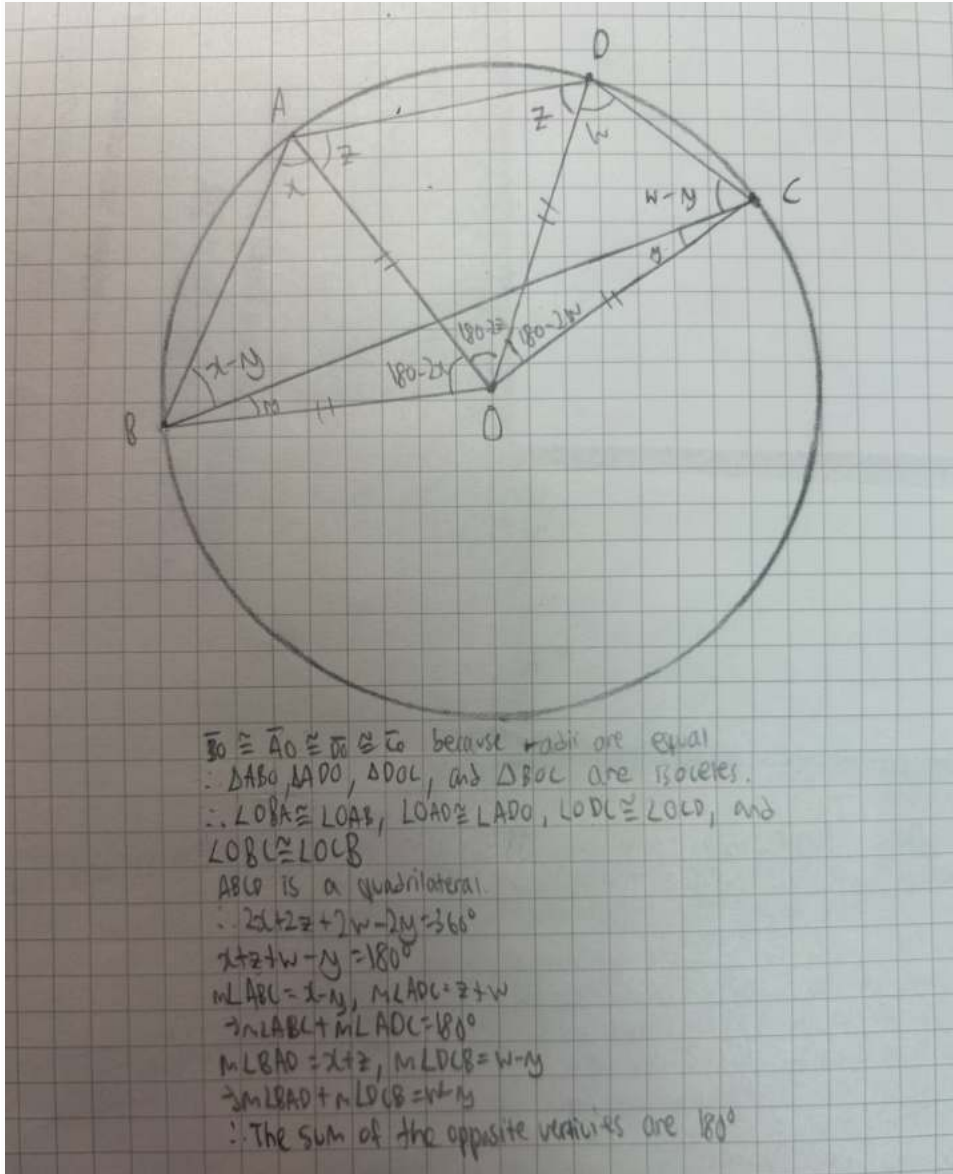 D
A
Z
W
Z
x
w-y
C
y
180-2z
180-2w
180-2x
x-y
y
B
O
B̅O̅ ≅ A̅O̅ ≅ D̅O̅ ≅ C̅O̅ because radii are equal
∴ ΔABO, ΔADO, ΔDOC, and ΔBOC are isoceles.
∴ ∠OBA≅∠OAB, ∠OAD≅∠ADO, ∠ODC≅∠OCD, and
∠OBC≅∠OCB
ABCD is a quadrilateral.
∴ 2x+2z+2w-2y=360°
x+z+w-y=180°
m∠ABC=x-y, m∠ADC=z+w
→m∠ABC+m∠ADC=180°
m∠BAD=x+z, m∠DCB=w-y
→m∠BAD+m∠DCB=w-y
∴ The sum of the opposite verticies are 180°